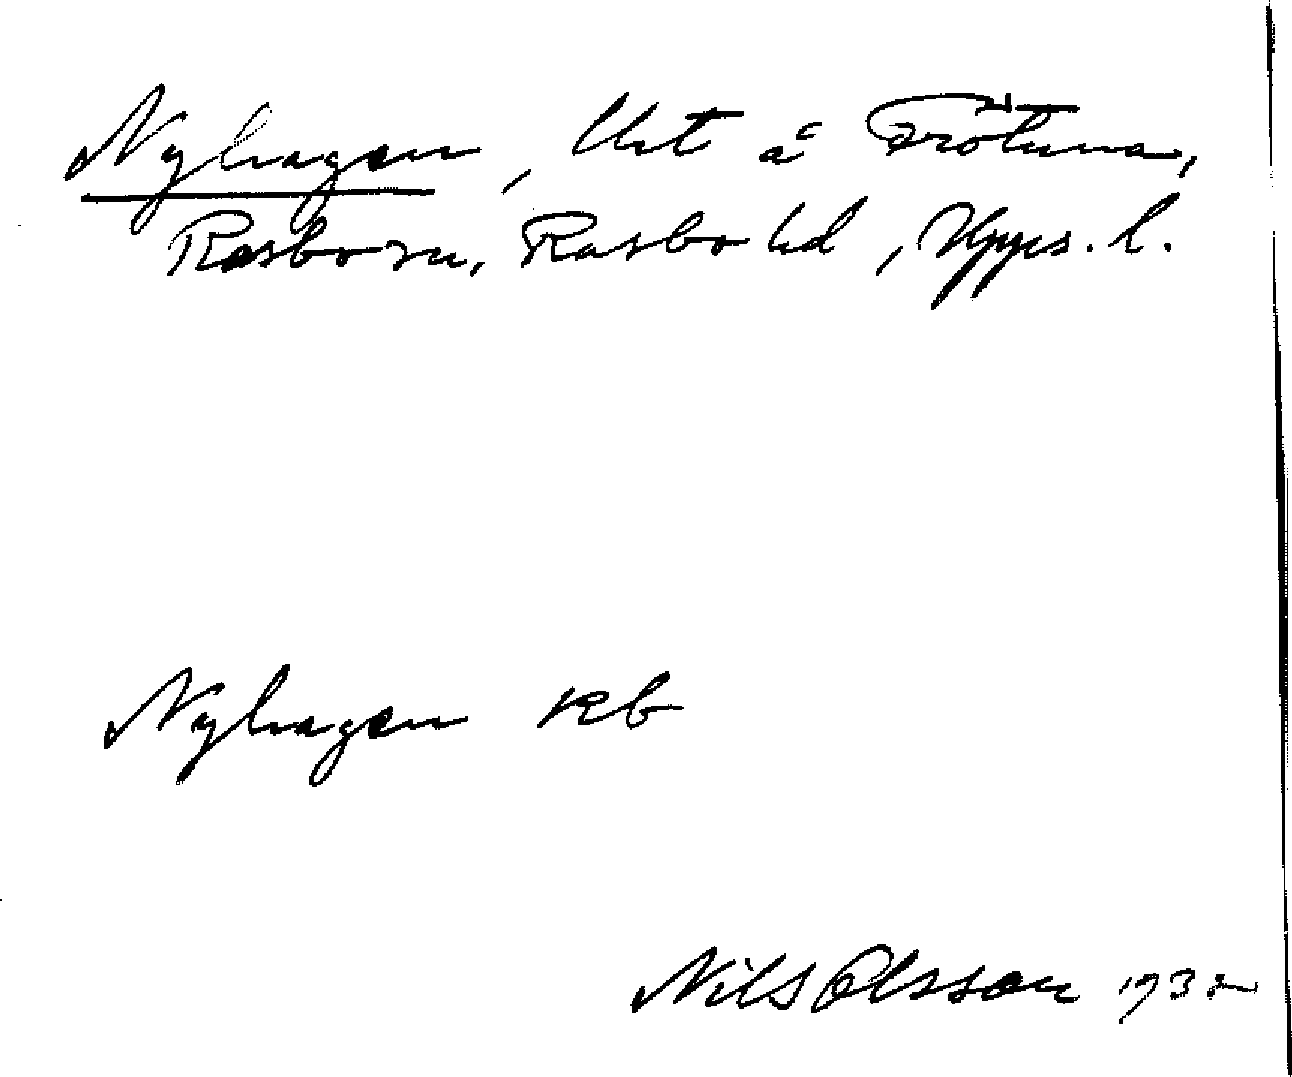 Nyhagen, lht å Frötuna,
Rasbo sn, Rasbo hd, Upps. l.
Nyhagen kb
Nils Olsson 1932